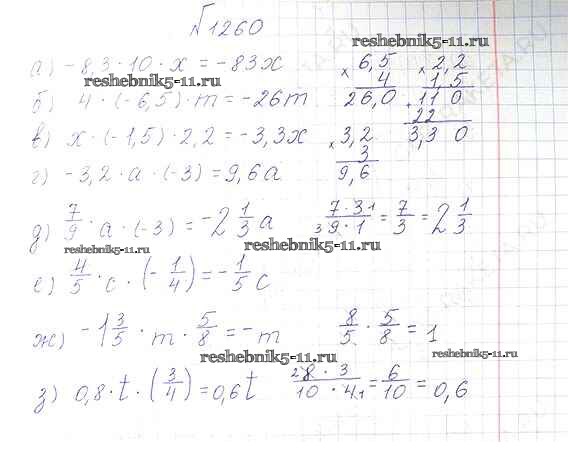 √1260
reshebnik5-11.ru
а) -8,3·10·x = -83x
reshebnik5-11.ru
б) 4·(-6,5)·m = -26m
в) x·(-1,5)·2,2 = -3,3x
г) -3,2·a·(-3) = 9,6a
× 6,5
4
26,0
× 2,2
1,5
+ 110
22
3,30
× 3,2
3
9,6
reshebnik5-11.ru
д) 7/9·a·(-3) = -2 1/3 a
7·3 1 / 3 9·1 = 7/3 = 2 1/3
reshebnik5-11.ru
reshebnik5-11.ru
е) 4/5·c·(-1/4) = -1/5 c
ж) -1 3/5·m·5/8 = -m
8/5·5/8 = 1
reshebnik5-11.ru
reshebnik5-11.ru
з) 0,8·t·(3/4) = 0,6t
2 8·3 / 10·4 1 = 6/10 = 0,6
reshebnik5-11.ru